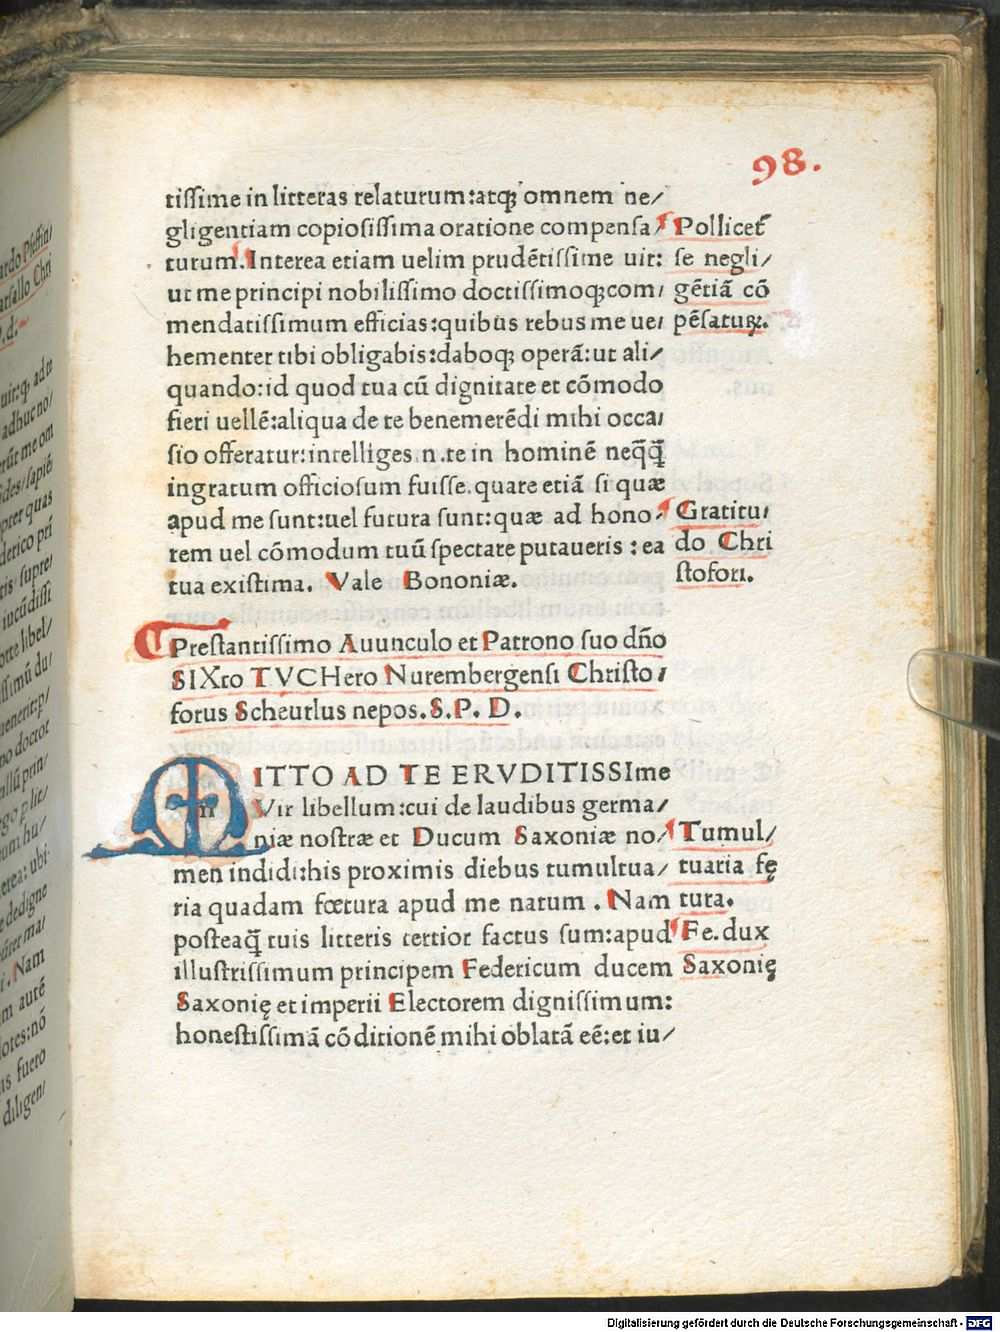 98.
tissime in litteras relaturum:atq; omnem ne/
gligentiam copiosissima oratione compensa/
turum. Interea etiam uelim prudētissime uir:
ut me principi nobilissimo doctissimoq;com/
mendatissimum efficias:quibus rebus me ue/
hementer tibi obligabis:daboq; operā:ut ali/
quando:id quod tua cū dignitate et cōmodo
fieri uellē:aliqua de te benemerēdi mihi occa/
sio offeratur:intelliges .n.te in hominē neq̄q̄
ingratum officiosum fuisse.quare etiā si quæ
apud me sunt:uel futura sunt:quæ ad hono/
rem uel cōmodum tuū spectare putaueris : ea
tua existima. Vale Bononiæ.
Pollicet̄
se negli/
gētiā cō
pēsatuꝝ.
Gratitu/
do Chri
stofori.
Prestantissimo Auunculo et Patrono suo dño
SIXto TVCHero Nurembergensi Christo/
forus Scheurlus nepos. S. P. D.
MITTO AD TE ERVDITISSIme
Vir libellum:cui de laudibus germa/
niæ nostræ et Ducum Saxoniæ no/
men indidi:his proximis diebus tumultua/
ria quadam fœtura apud me natum . Nam
posteaq̄ tuis litteris certior factus sum:apud
illustrissimum principem Federicum ducem
Saxonię et imperii Electorem dignissimum:
honestissimā cōditionē mihi oblatā eē:et iu/
Tumul/
tuaria fę
tura.
Fe. dux
Saxonię
Digitalisierung gefördert durch die Deutsche Forschungsgemeinschaft - DFG